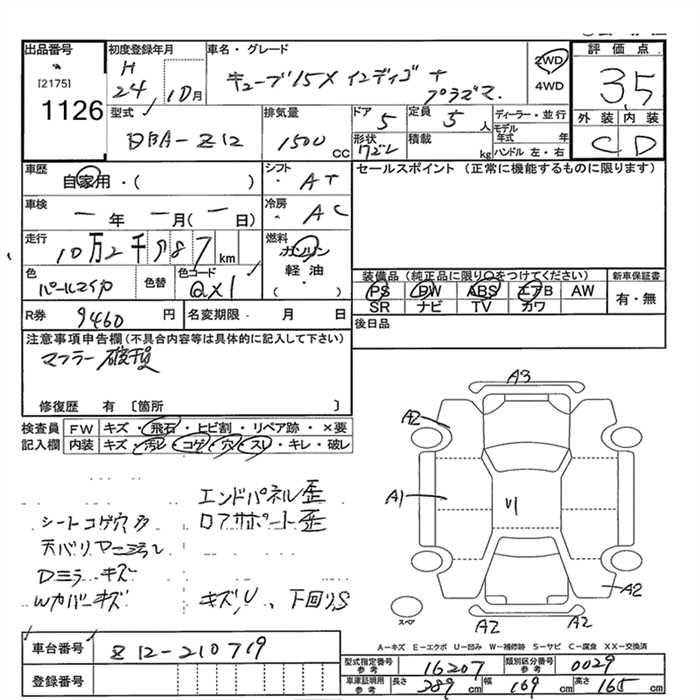 出品番号 初度登録年月 車名・グレード 2WD 4WD 評価点
[2175] H 24 10月 キューブ15X インディゴ+プラズマ. 3.5
1126 外装 内装
型式 排気量 ドア 定員 ディーラー・並行
DBA-Z12 1500 CC 5 5人 モデル年式 年
形状 ワゴン 積載 kg ハンドル 左・右 C D
車歴 自家用・( ) シフト ・AT セールスポイント (正常に機能するものに限ります)
車検 一年 一月(一日) 冷房 ・AC
走行 10万2千987km 燃料 ガソリン
軽油・
( )
色 パールマイカ 色替 色コード QX1
装備品 (純正品に限り○をつけてください) 新車保証書
PS PW ABS エアB AW 有・無
SR ナビ TV カワ
R券 9460円 名変期限・ 月 日 後日品
注意事項申告欄 (不具合内容等は具体的に記入して下さい)
マフラー破損
修復歴 有 [箇所 ]
検査員 FW キズ・飛石・ヒビ割・リペア跡・×要
記入欄 内装 キズ・汚レ・コゲ・穴・スレ・キレ・破レ
エンドパネル歪
シートコゲ穴多 ロアサポート歪
天バリ
Dミラ キズ
Wカバーキズ キズU、下回りS
A3
A2
A1
U
A2
A2 A2
スペア
A-キズ E-エクボ U-凹み W-補修跡 S-サビ C-腐食 XX-交換済
車台番号 Z12-210719
登録番号
型式指定番号 参考 16207 類別区分番号 参考 0029
車庫証明用 参考 長さ 389cm 幅 169cm 高さ 165cm